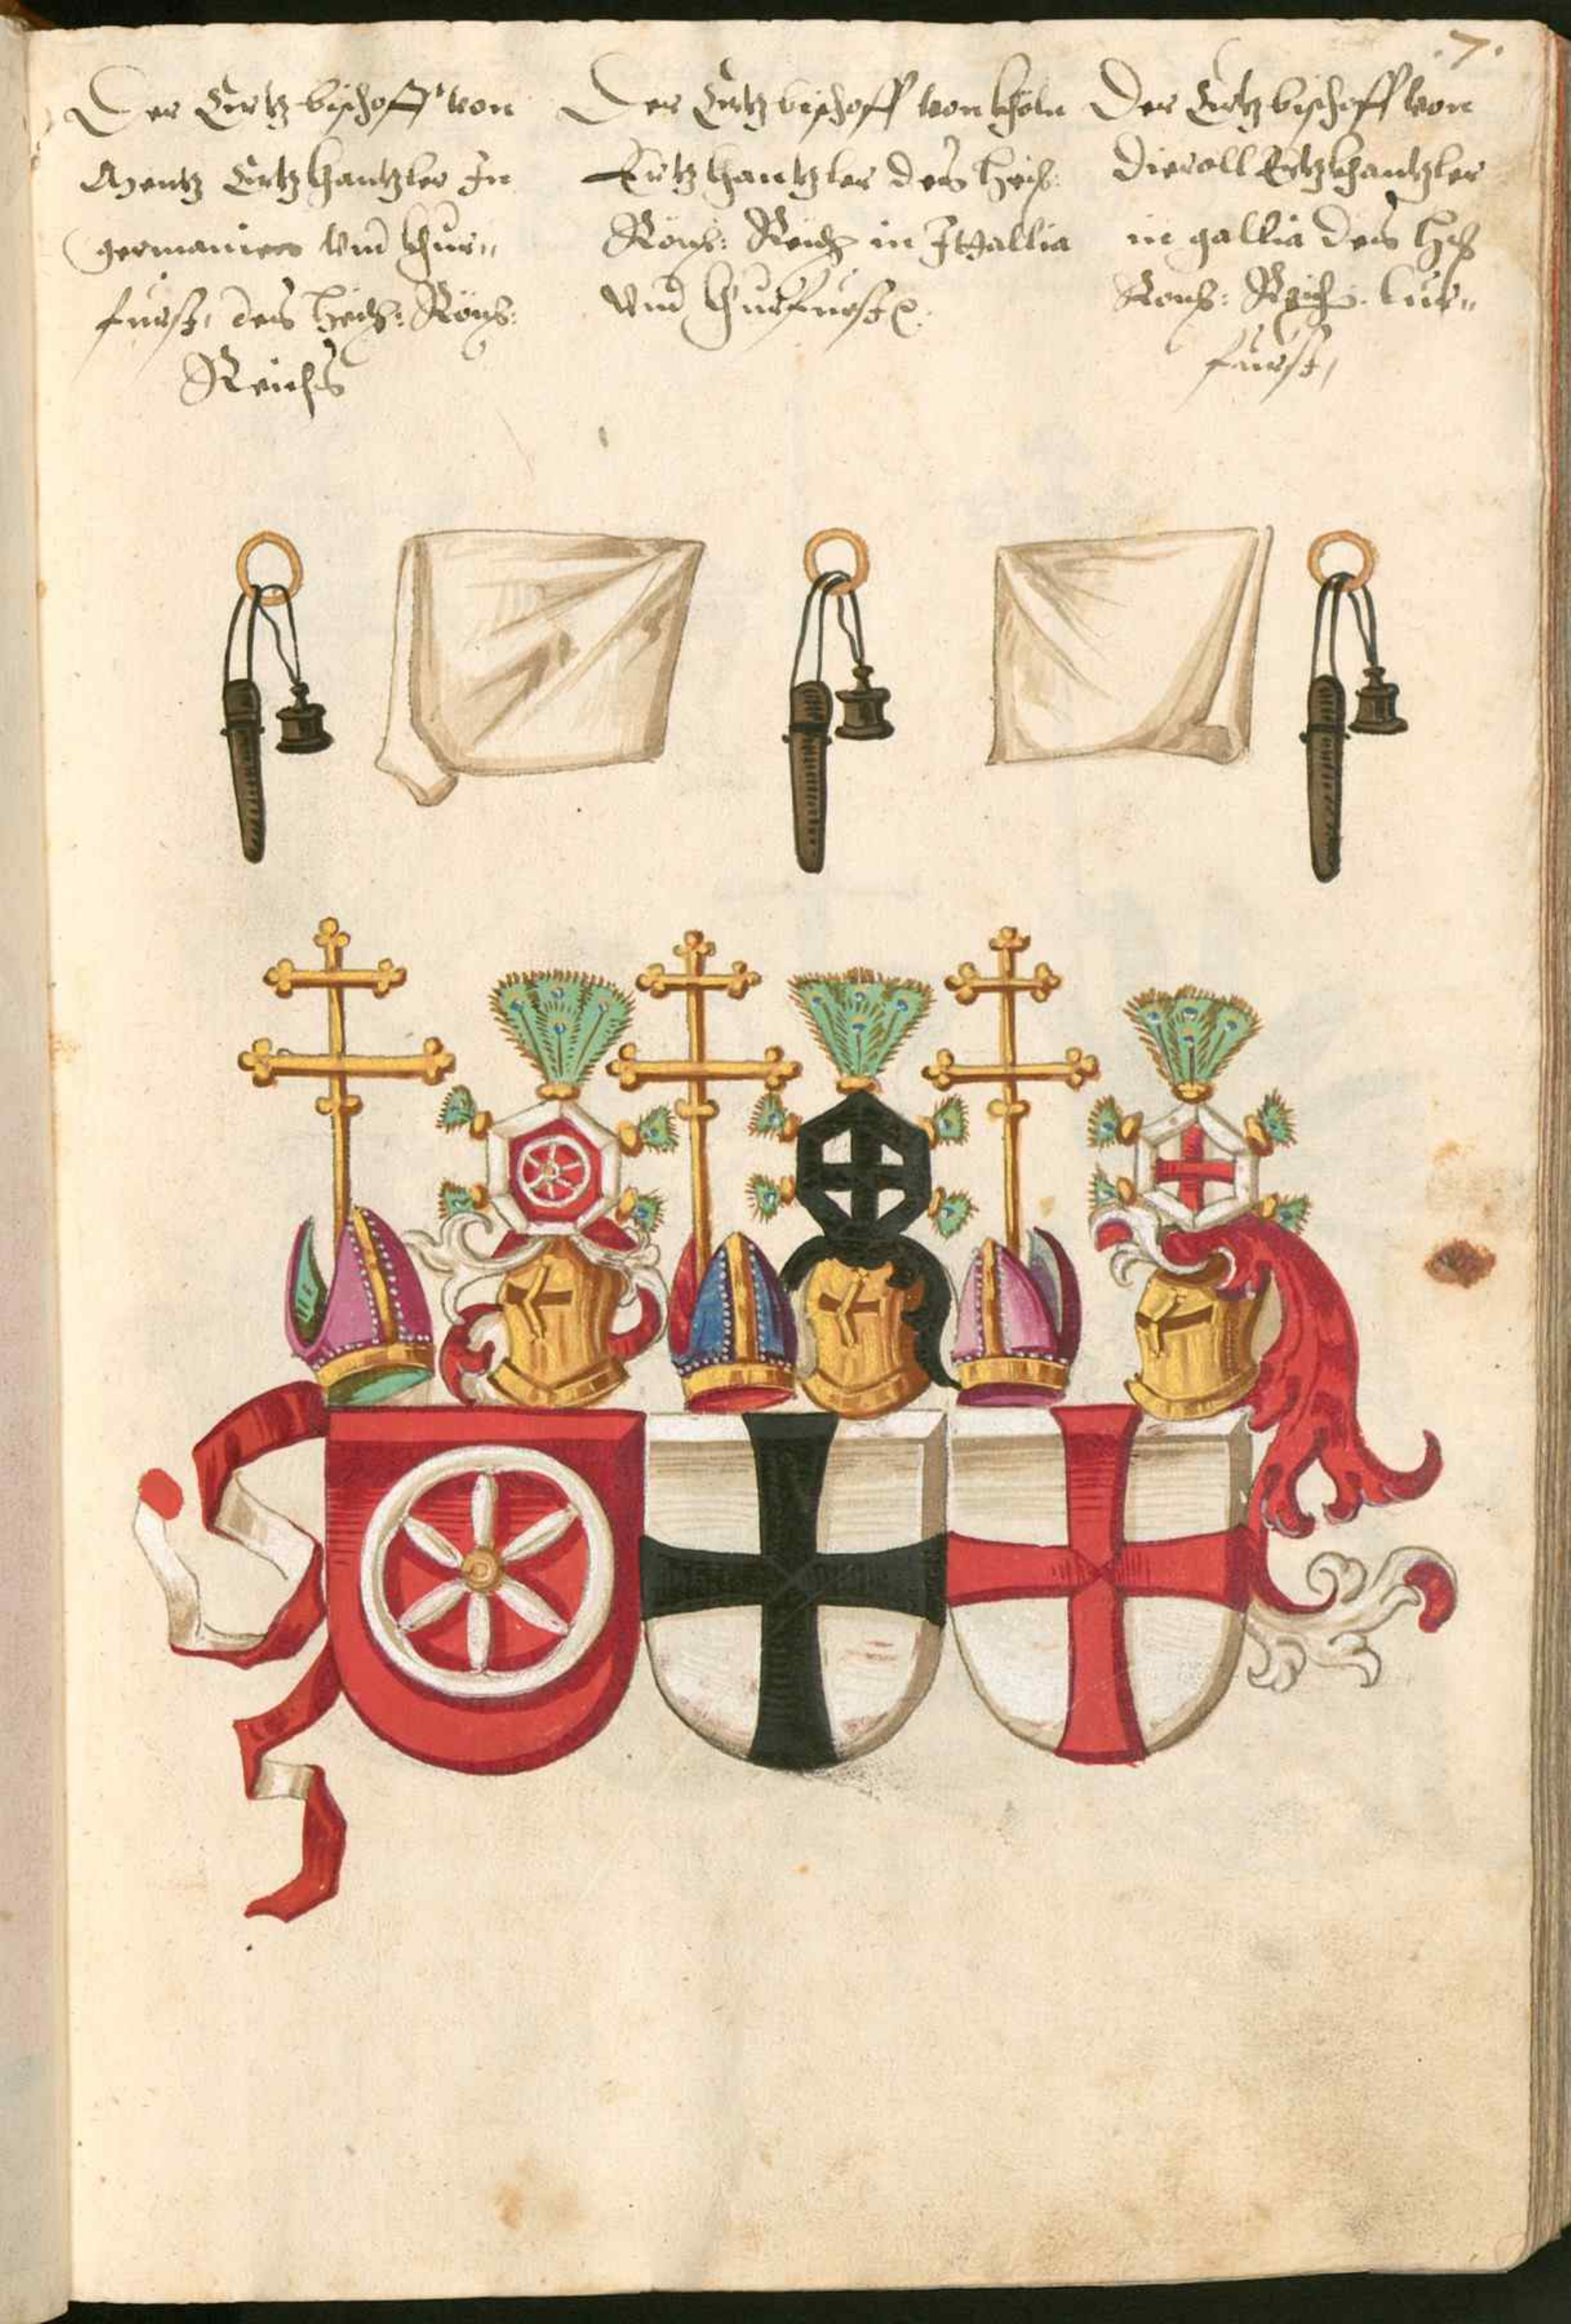 7.
Der Ertzbischoff von
Mentz Ertzkhantzler In
germanien vnd khur„
fürst, des heÿ: Röm:
Reichs
Der Ertzbischoff von khöln
Ertzkhantzler des heÿ:
Röm: Reich in Ittallia
vnd khurfürst
Der Ertzbischoff von
Dierall Ertzkhantzler
in gallia des
Röm: Reich. kur„
fürst,